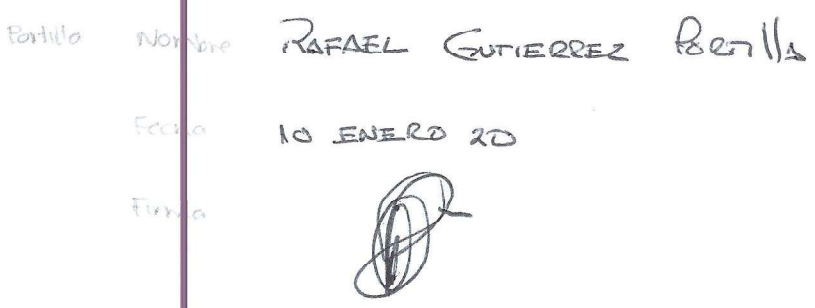 Portilla Nombre RAFAEL GUTIERREZ PORTILLA
Fecha 10 ENERO 20
Firma